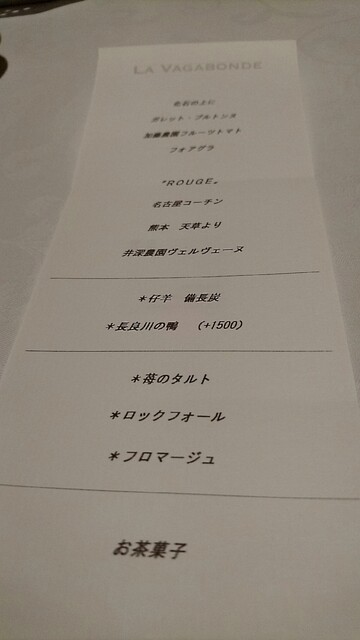 LA VAGABONDE
石の上に
ガレット・ブルトンヌ
加藤農園フルーツトマト
フォアグラ
"ROUGE"
名古屋コーチン
熊本 天草より
井深農園ヴェルヴェーヌ
*仔羊 備長炭
*長良川の鴨 (+1500)
*苺のタルト
*ロックフォール
*フロマージュ
お茶菓子